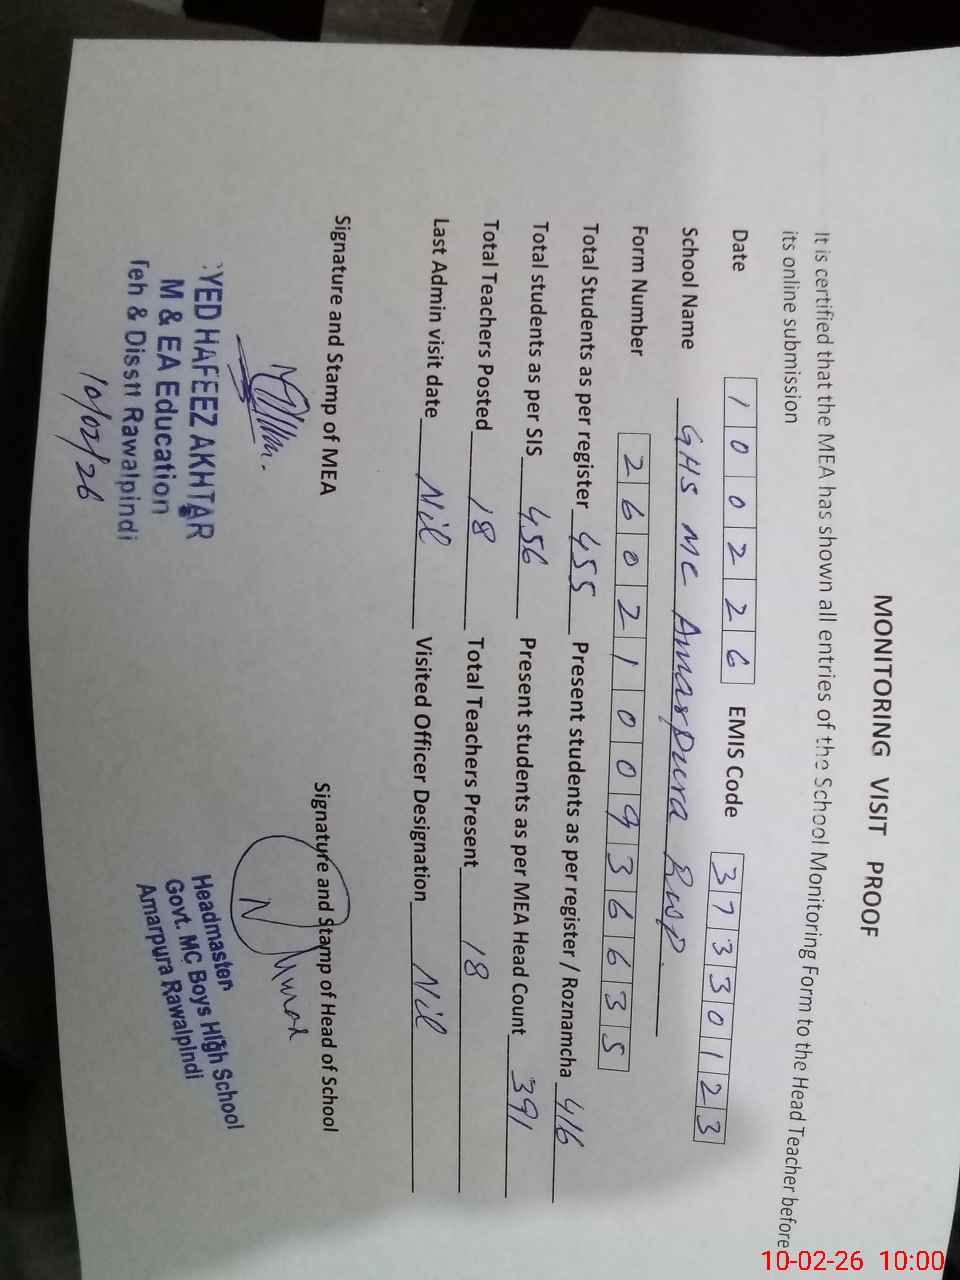 MONITORING VISIT PROOF
It is certified that the MEA has shown all entries of the School Monitoring Form to the Head Teacher before
its online submission
Date 100226 EMIS Code 37330123
School Name GHS MC Amarpura Rwp.
Form Number 2602100936635
Total Students as per register 455 Present students as per register / Roznamcha 416
Total students as per SIS 456 Present students as per MEA Head Count 391
Total Teachers Posted 18 Total Teachers Present 18
Last Admin visit date Nil Visited Officer Designation Nil
Signature and Stamp of MEA Signature and Stamp of Head of School
YED HAFEEZ AKHTAR
M & EA Education
Teh & Disstt Rawalpindi
10/02/26
Headmaster
Govt. MC Boys High School
Amarpura Rawalpindi
10-02-26 10:00